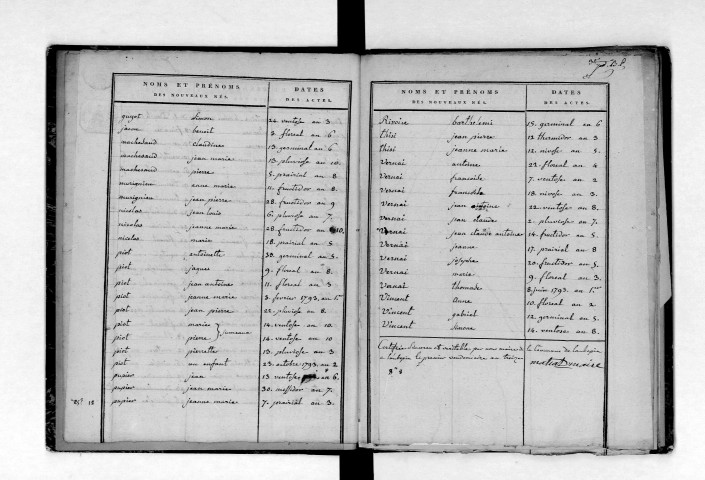 NOMS ET PRÉNOMS DATES
DES NOUVEAUX NÉS. DES ACTES.
guyot simon 22 ventose an 3.
jason benoit 3 floreal an 6
machabaud claudine 13 germinal an 6.
machesaud jean marie 13 pluviose an 10.
machesaud pierre 5 prairial an 8
murignien anne marie 11 fructidor an 8.
murignien jean pierre 28 fructidor an 9
nicolas jean louis 6 pluviose an 7.
nicolas jeanne marie 28 fructidor an 10.
nicolas marie 18 prairial an 5
piot antoinette 30 germinal an 3.
piot jaques 9 floreal an 8.
piot jean antoine 11 floreal an 3
piot jeanne marie 3 fevrier 1793. an 1er
piot jean pierre 22 pluviose an 8.
piot marie 14 ventose an 10.
piot pierre } jumeaux 14 ventose an 10
piot pierrette 13 pluviose an 3
piot un enfant 23 octobre 1793. an 2
pupier jean 13 ventose an 6.
pupier jean marie 30 messidor an 7.
pupier jeanne marie 7 prairial an 3.
NOMS ET PRÉNOMS DATES
DES NOUVEAUX NÉS. DES ACTES.
Rivoire barthelemi 15 germinal an 6
thisi jean pierre 12 thermidor an 3
thisi jeanne marie 12 nivose an 5.
Vernai antoine 23 floreal an 4
Vernai francoise 7 ventose an 2
Vernai 18 nivose an 3.
Vernai jean antoine 22 ventose an 8.
Vernai jean claude 2 pluviose an 7.
Vernai jean claude antoine 14 fructidor an 5.
Vernai jeanne 17 prairial an 8
Vernai josephe 20 fructidor an 5.
Vernai marie 9 floreal an 3.
Vernai thomade 8 juin 1793. an 1er
Vincent anne 10 floreal an 2
Vincent gabriel 12 germinal an 5
Vincent simone 14 ventose an 8.
Certifié sincere et veritable, par nous maire de la Commune de
le premier vendemiaire an treize